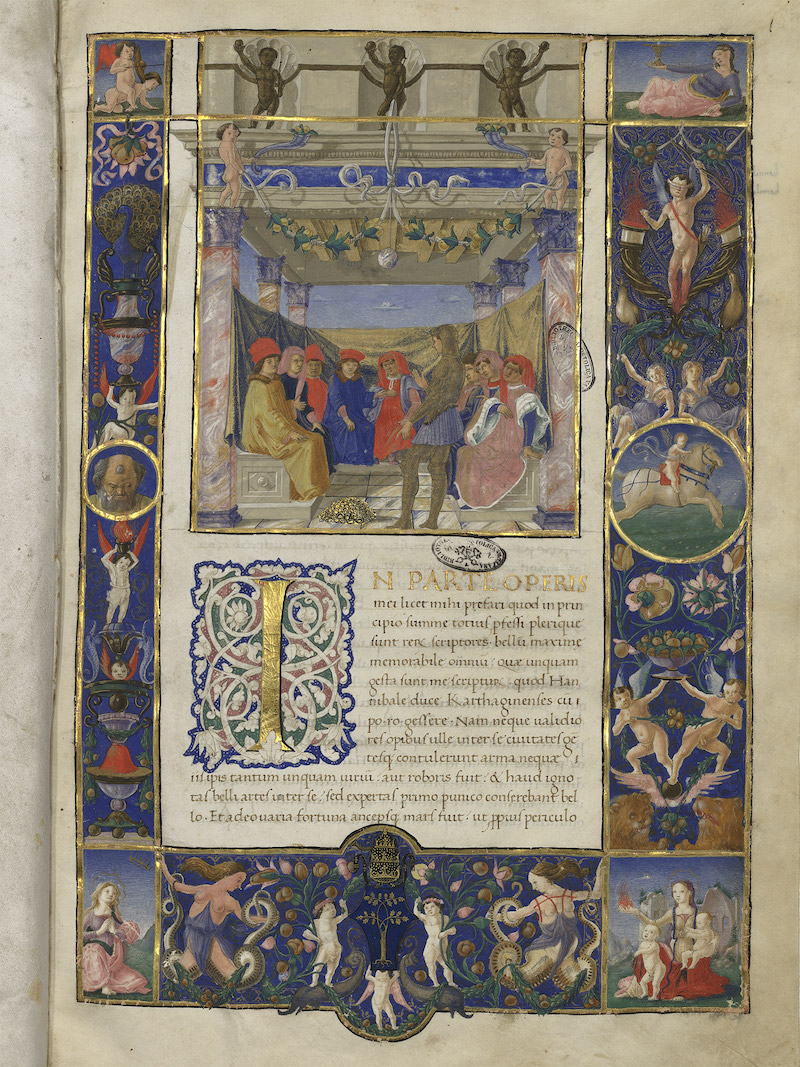 IN PARTE OPERIS
mei licet mihi prefari quod in prin
cipio summe totius pfessi plerique
sunt rerꝝ scriptores: bellū maxime
memorabile omniū: quæ unquam
gesta sunt me scripturū: quod Han
nibale duce Karthaginenses cū i
po.ro gessere. Nam neque ualidio
res opibus ulle inter se ciuitates ge
tesq; contulerunt arma nequæ i
is ipis tantum unquam uiriū aut roboris fuit: & haud igno
tas belli artes inter se: sed expertas primo punico conserebant bel
lo. Et adeo uaria fortuna ancepsq; mars fuit: ut ppius periculo